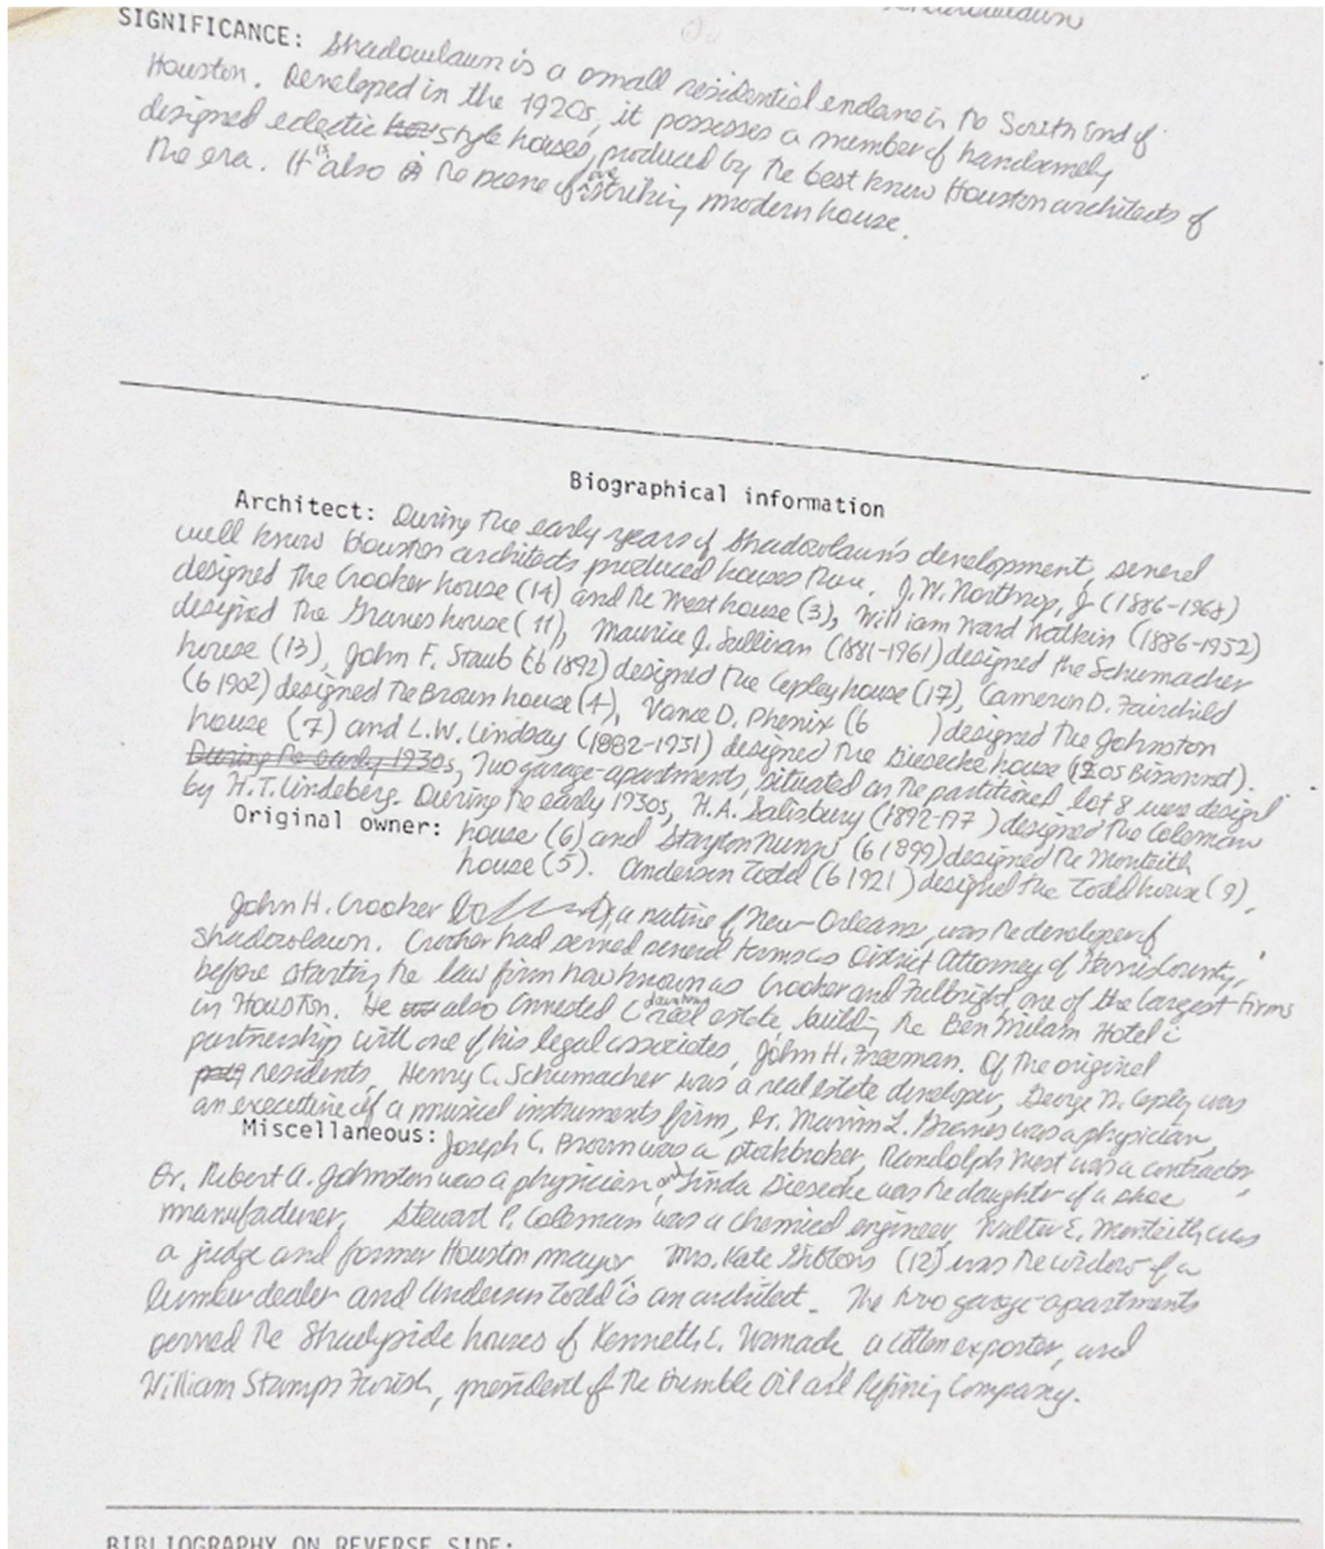 Shadowlawn
SIGNIFICANCE: Shadowlawn is a small residential enclave in the South End of
Houston. Developed in the 1920s, it possesses a number of handsomely
designed eclectic hou style houses, produced by the best know Houston architects of
the era. It is also the scene of one striking modern house.
Biographical information
Architect: During the early years of Shadowlawn's development, several
well know Houston architects produced houses there. J.W. Northrop, Jr (1886-1968)
designed the Crooker house (14) and the West house (3), William Ward Watkin (1886-1952)
designed the Graves house (11), Maurice J. Sullivan (1881-1961) designed the Schumacher
house (13), John F. Staub (b 1892) designed the Copley house (17), Cameron D. Fairchild
(b 1902) designed the Brown house (4), Vance D. Phenix (b      ) designed the Johnston
house (7) and L.W. Lindsay (1882-1931) designed the Diesecke house (1205 Bissonnet).
During the early 1930s, Two garage-apartments, situated on the partitioned lot 8 were design
by H.T. Lindeberg. During the early 1930s, H.A. Salisbury (1892-197 ) designed the Coleman
Original owner: house (6) and Stayton Nunn (b 1899) designed the Monteith
house (5). Anderson Todd (b 1921) designed the Todd house (9).
John H. Crooker a native of New Orleans, was the developer of
Shadowlawn. Crooker had served several terms as District Attorney of Harris County,
before starting the law firm now known as Crooker and Fulbright, one of the largest firms
in Houston. He also invested in downtown real estate, building the Ben Milam Hotel in
partnership with one of his legal associates, John H. Freeman. Of the original
residents, Henry C. Schumacher was a real estate developer, George N. Copley was
an executive of a musical instruments firm, Dr. Marvin L. Graves was a physician,
Miscellaneous: Joseph C. Brown was a stockbroker, Randolph West was a contractor,
Dr. Robert A. Johnston was a physician and Linda Diesecke was the daughter of a shoe
manufacturer. Stewart P. Coleman was a chemical engineer, Walter E. Monteith was
a judge and former Houston mayor. Mrs. Kate Gibbons (12) was the widow of a
lumber dealer and Anderson Todd is an architect. The two garage-apartments
served the Shadyside houses of Kenneth E. Womack, a cotton exporter, and
William Stamps Farish, president of the Humble Oil and Refining Company.
BIBLIOGRAPHY ON REVERSE SIDE: